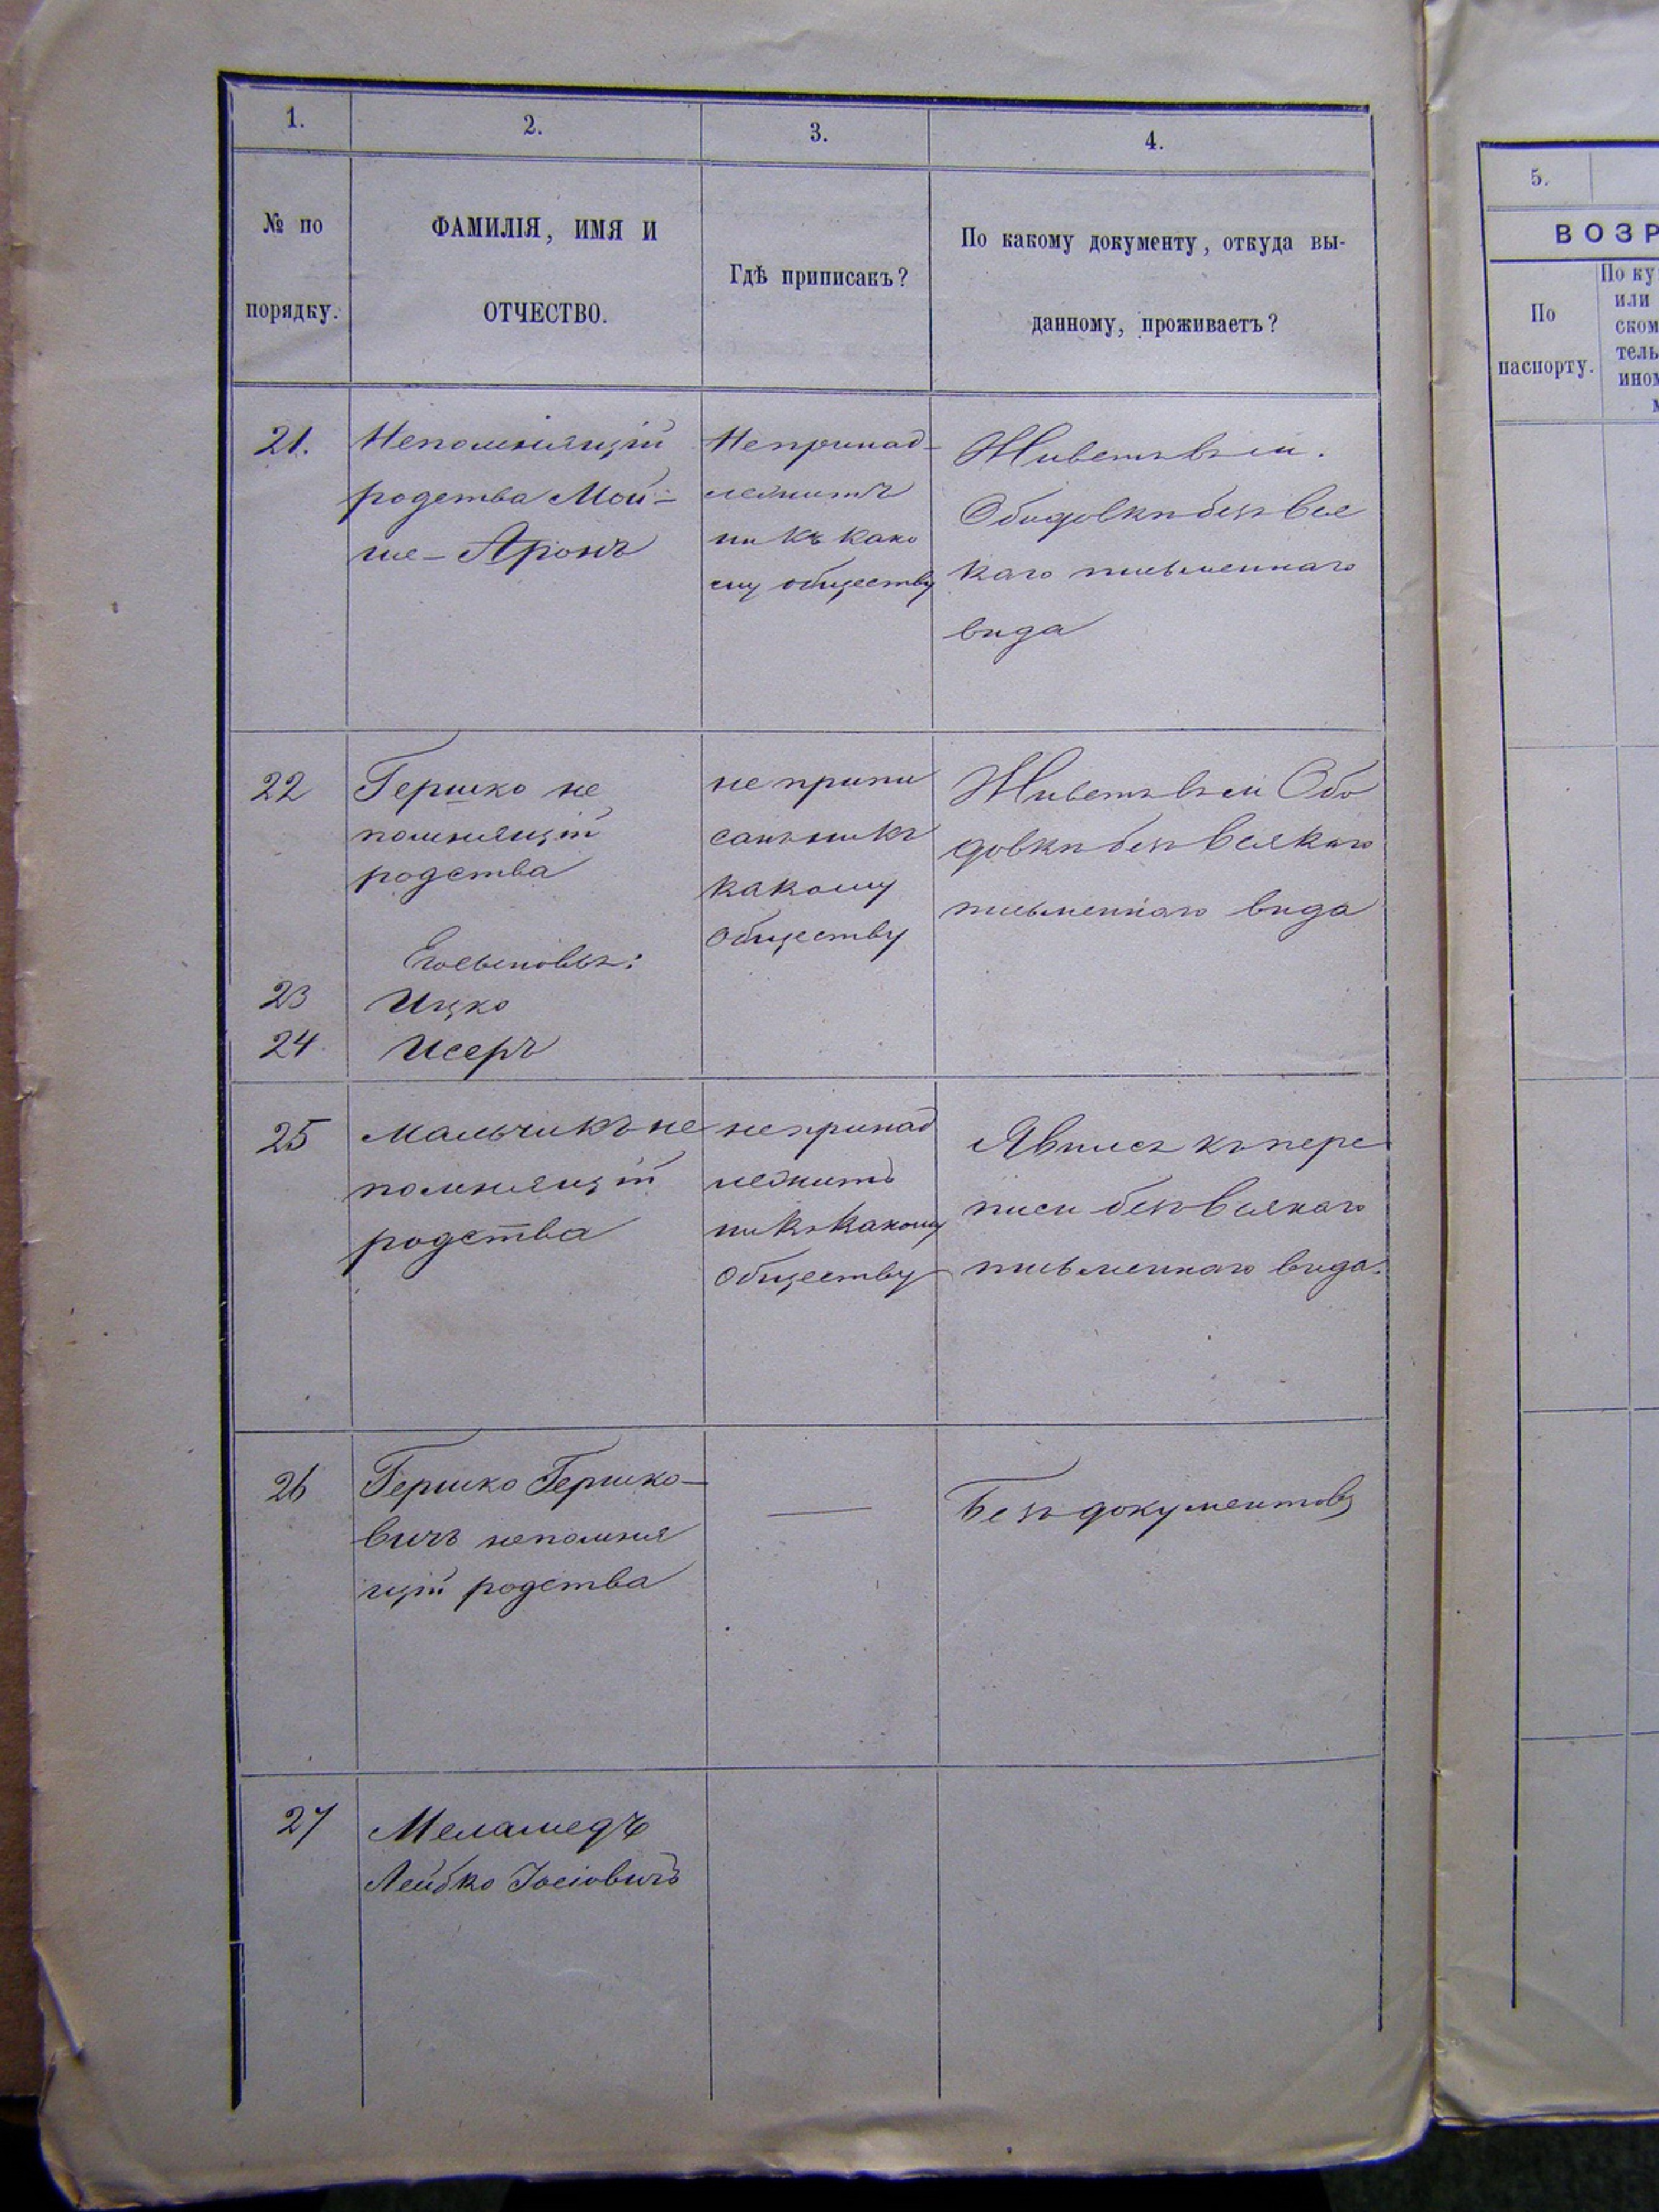 1. 2. 3. 4.
№ по
порядку.
ФАМИЛІЯ, ИМЯ И
ОТЧЕСТВО.
Гдѣ приписакъ?
По какому документу, откуда вы-
данному, проживаетъ?
21.
Непомнящій
родства Мой-
ше-Аронъ
Непринад-
лежитъ
ни къ како
му обществу
Живетъ въ м.
Ободовкѣ безъ вся
каго письменнаго
вида
22
Гершко не
помнящій
родства
Его сыновья:
23
Ицко
24
Исеръ
не припи
санъ ни къ
какому
обществу
Живетъ въ м. Обо
довкѣ безъ всякаго
письменнаго вида
25
Мальчикъ не
помнящій
родства
не принад
лежитъ
ни къ какому
обществу
Явился къ пере
писи безъ всякаго
письменнаго вида.
26
Гершко Гершко-
вичъ непомня
щій родства
—
Безъ документовъ
27
Меламедъ
Лейбко Іосіовичъ
5.
ВОЗР
По
паспорту.
По ку
или
ском
тель
ином